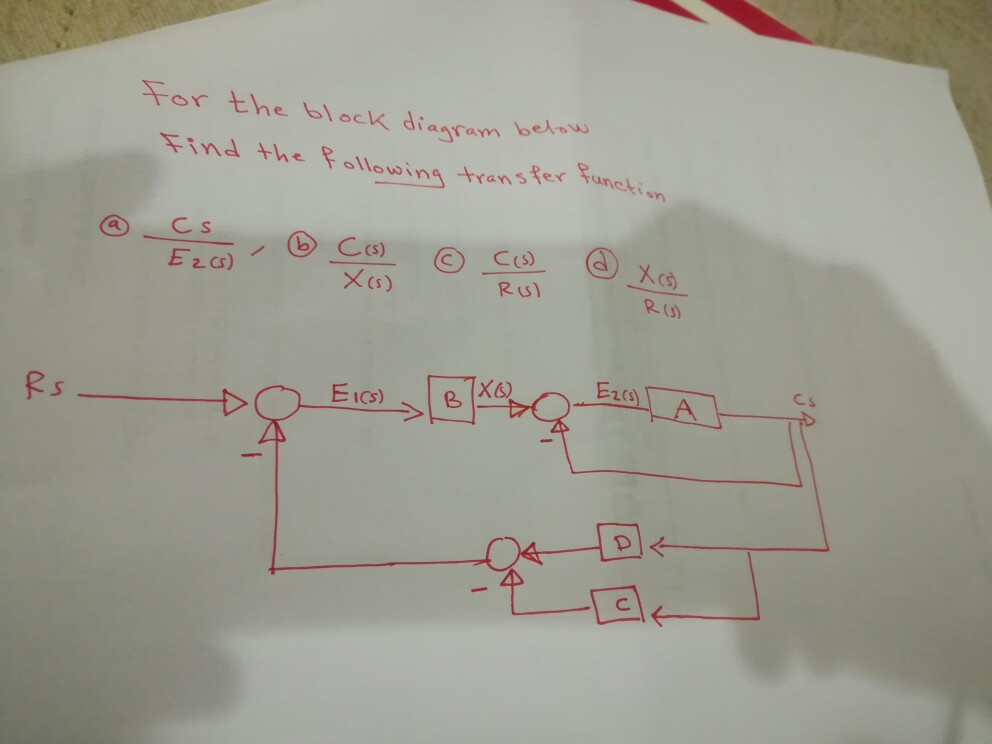 For the block diagram below
Find the following transfer function
a Cs / E2(s) , b C(s) / X(s) c C(s) / R(s) d X(s) / R(s)
Rs E1(s) B X(s) E2(s) A Cs
-
-
D
-
C